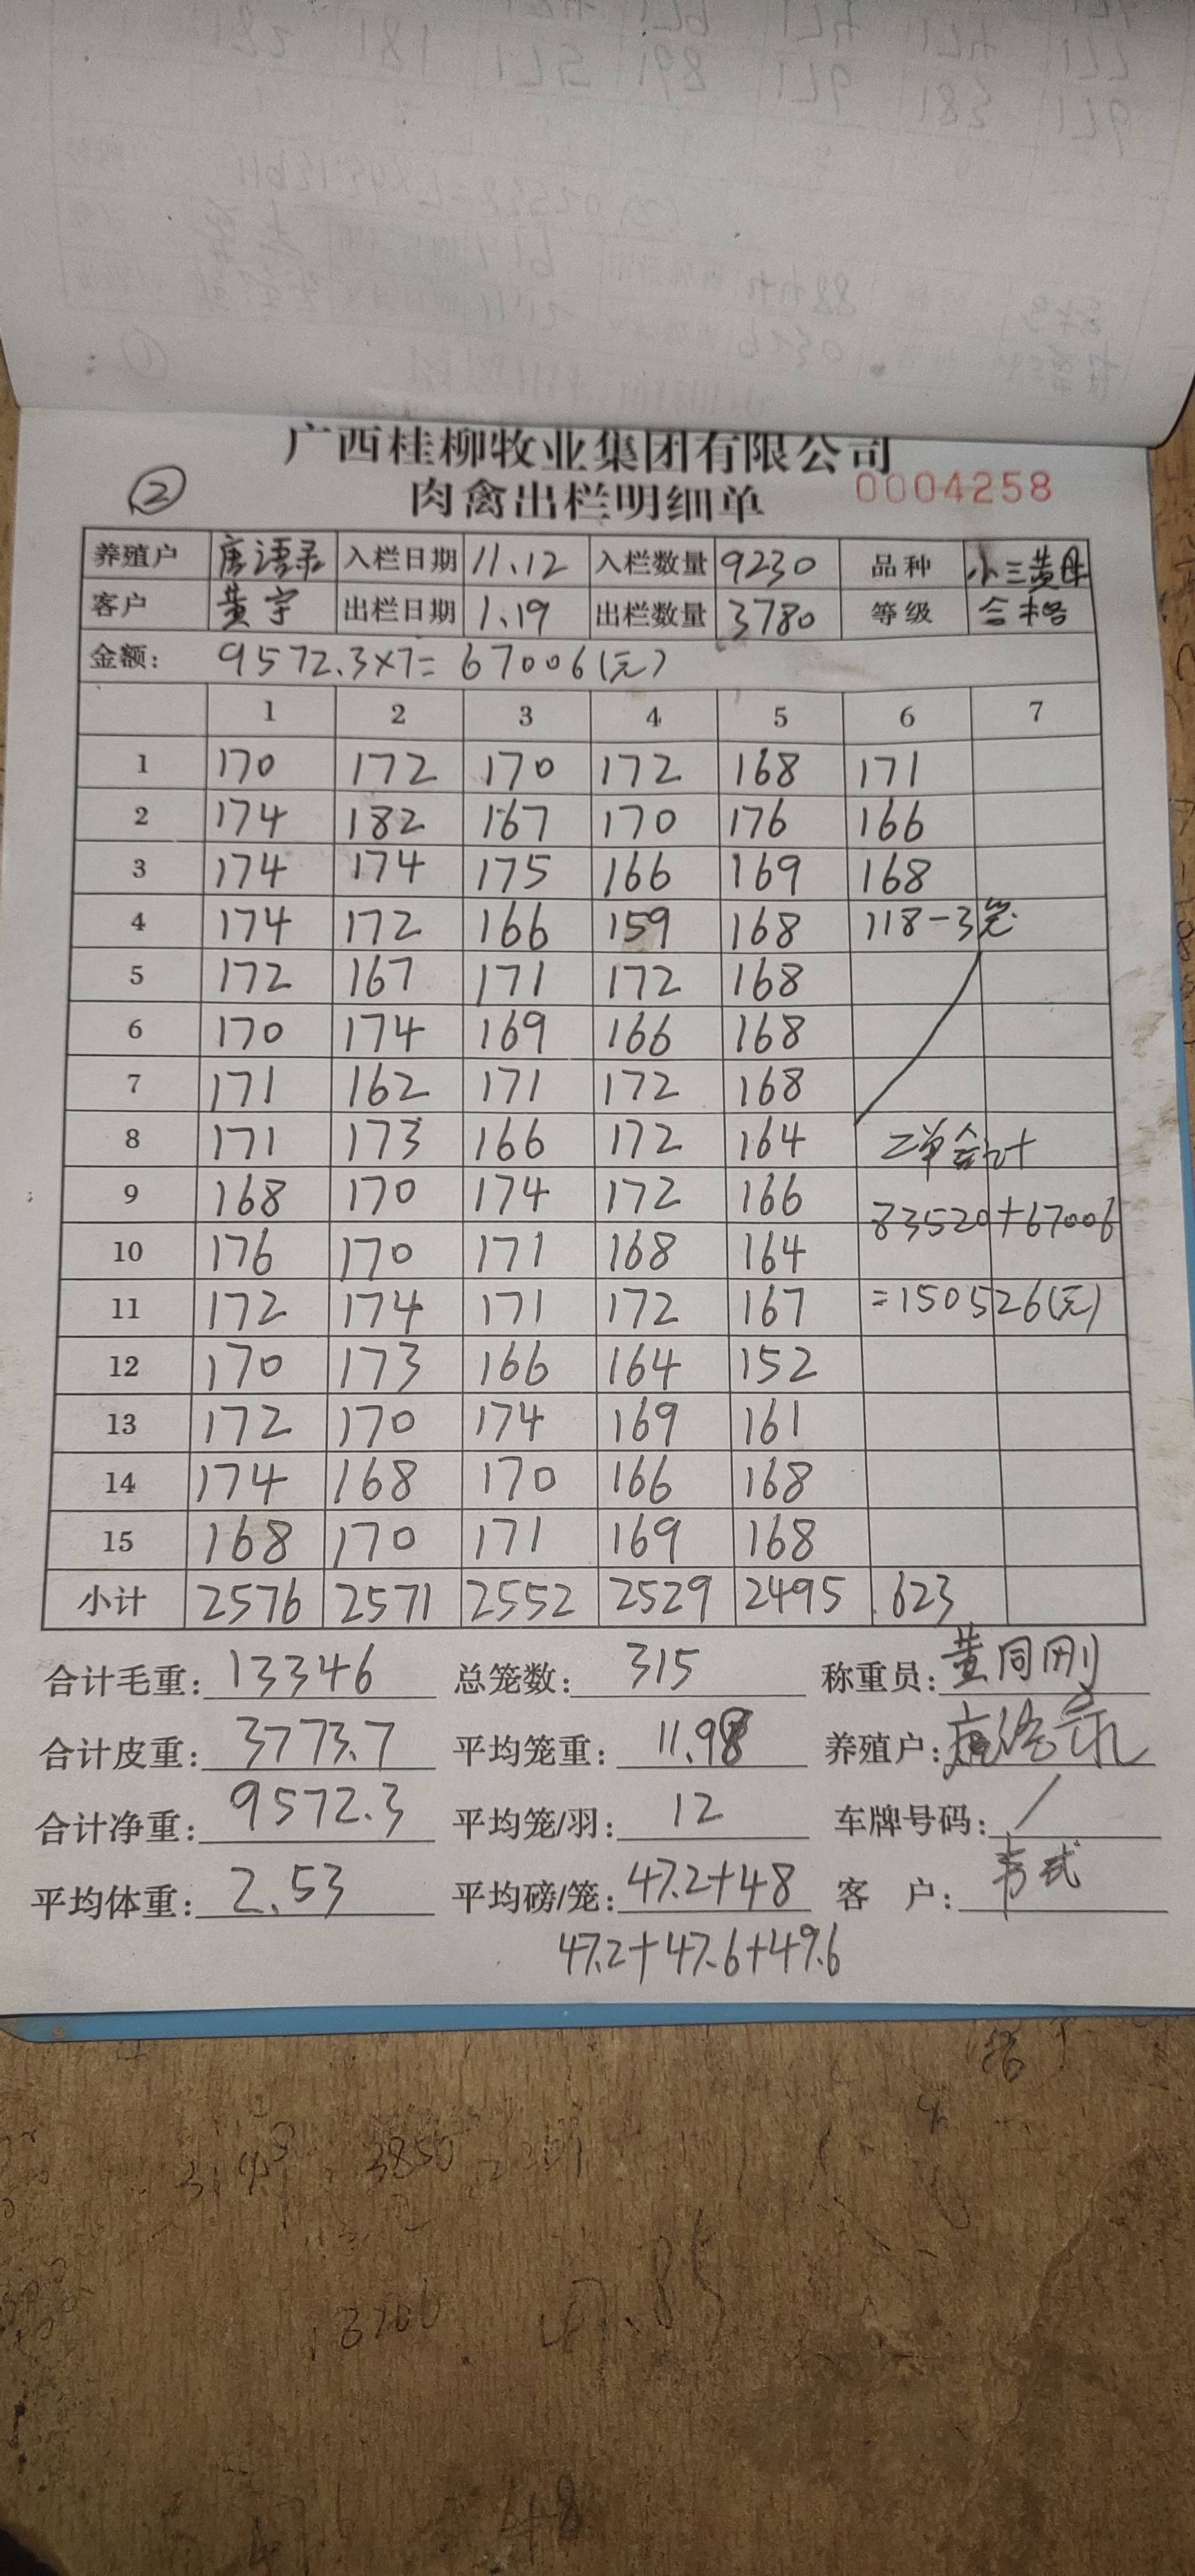 广西桂柳牧业集团有限公司
② 肉禽出栏明细单 0004258
养殖户 唐语录 入栏日期 11.12 入栏数量 9230 品种 小三黄母
客户 黄宇 出栏日期 1.19 出栏数量 3780 等级 合格
金额: 9572.3×7=67006(元)
1 2 3 4 5 6 7
1 170 172 170 172 168 171
2 174 182 167 170 176 166
3 174 174 175 166 169 168
4 174 172 166 159 168 118-3笼
5 172 167 171 172 168
6 170 174 169 166 168
7 171 162 171 172 168
8 171 173 166 172 164 二单合计
9 168 170 174 172 166 83520+67006
10 176 170 171 168 164
11 172 174 171 172 167 =150526(元)
12 170 173 166 164 152
13 172 170 174 169 161
14 174 168 170 166 168
15 168 170 171 169 168
小计 2576 2571 2552 2529 2495 623
合计毛重: 13346 总笼数: 315 称重员: 黄同刚
合计皮重: 3773.7 平均笼重: 11.98 养殖户:
合计净重: 9572.3 平均笼/羽: 12 车牌号码: /
平均体重: 2.53 平均磅/笼: 47.2+48 客 户:
47.2+47.6+49.6